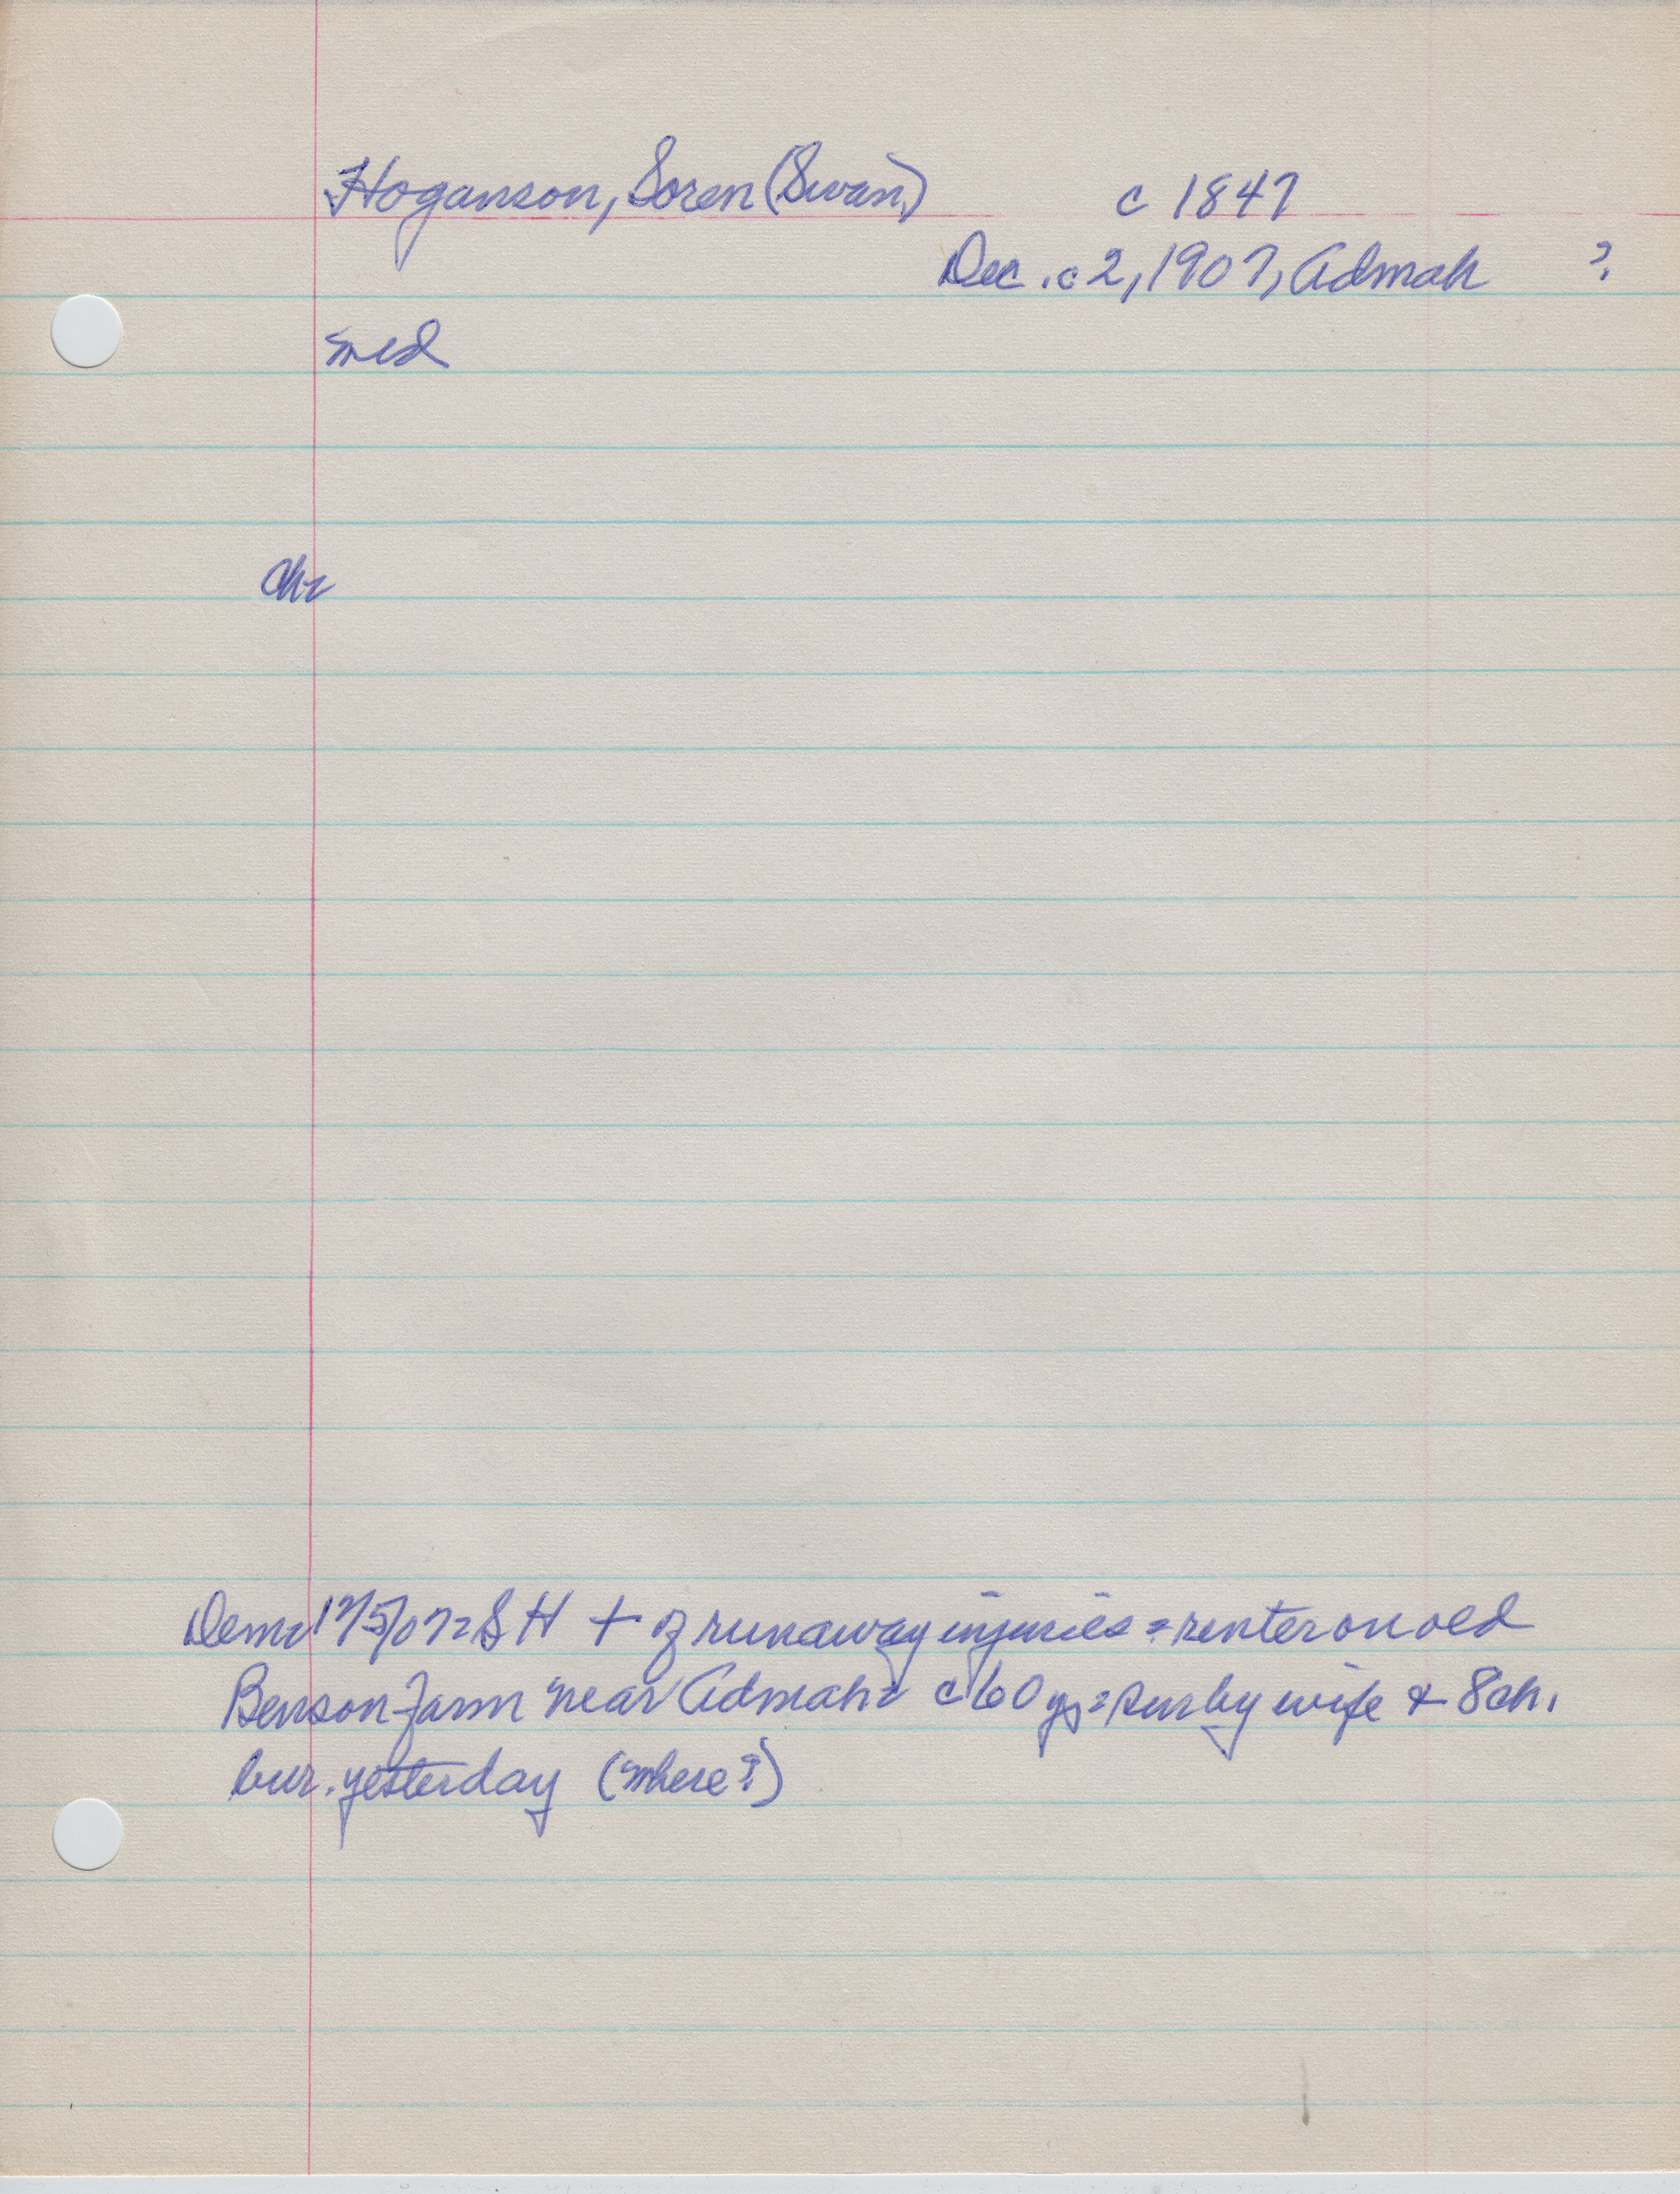 Hoganson, Soren (Swan) c 1847
Dec. c 2, 1907, Admah ?
med
Ch:
Demo 12/5/07 = S H + of runaway injuries = renter on old
Benson farm near Admah = c 60 ys = sur by wife & 8 ch.
bur. yesterday (where?)